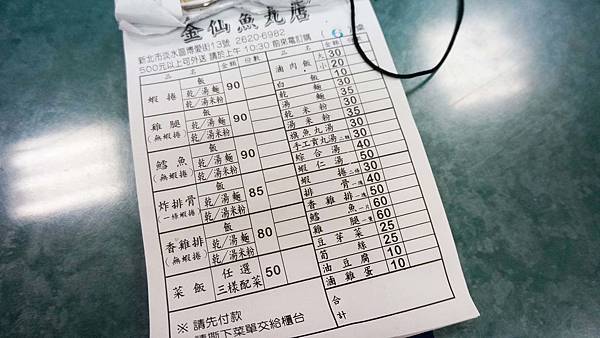 金仙魚丸店
新北市淡水區博愛街13號 2620-6982
500元以上可外送 請於上午 10:30 前來電訂購
品名 金額 份數 品名 金額
蝦捲 飯 乾/湯麵 乾/湯米粉 90
雞腿 (無蝦捲) 飯 乾/湯麵 乾/湯米粉 90
鱈魚 (無蝦捲) 飯 乾/湯麵 乾/湯米粉 90
炸排骨 一條蝦捲 飯 乾/湯麵 乾/湯米粉 85
香雞排 (無蝦捲) 飯 乾/湯麵 乾/湯米粉 80
菜飯 任選三樣配菜 50
滷肉飯 大 30
小 20
白飯 10
乾麵 30
湯麵 35
乾米粉 30
湯米粉 35
旗魚丸湯 30
手工貢丸湯 30
綜合湯 40
蝦仁湯 50
蝦捲 二條 30
排骨 一塊 40
香雞排 一塊 50
鱈魚 一片 60
雞腿 一隻 60
豆芽菜 25
筍絲 25
油豆腐 10
滷雞蛋 10
合計
※ 請先付款
請撕下菜單交給櫃台